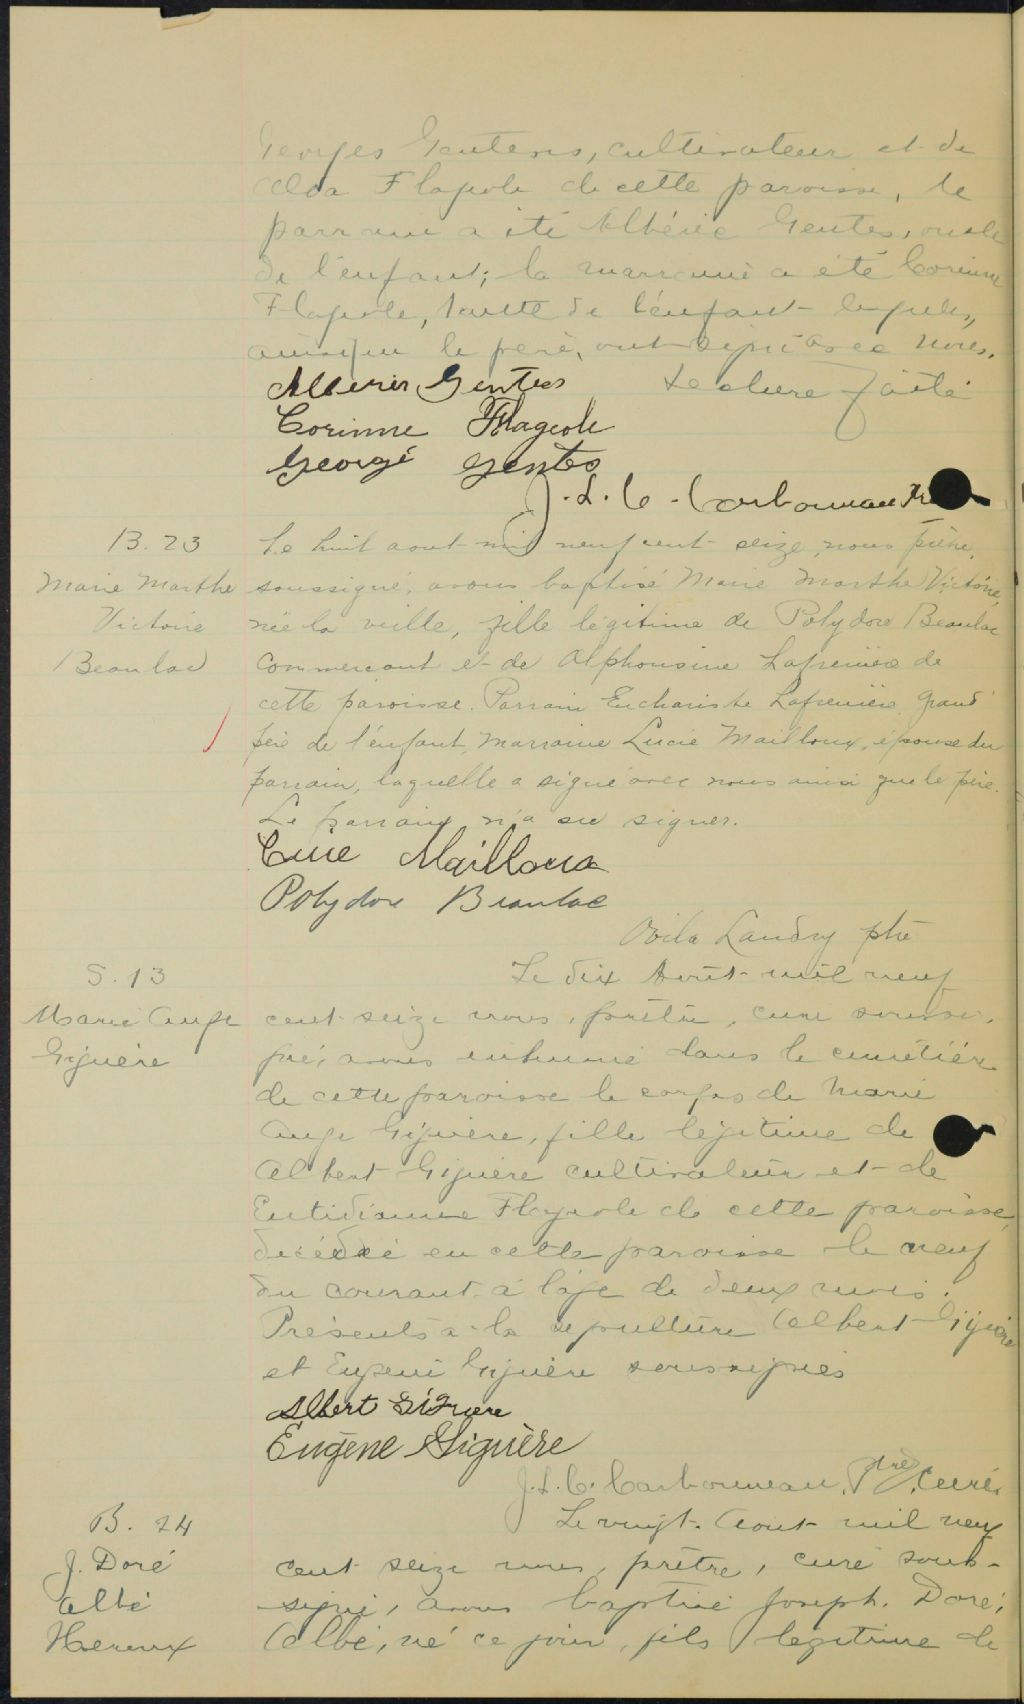 Georges Gentes, cultivateur et de
Alda Flageole de cette paroisse, le
parrain a été Albéric Gentes, oncle
de l'enfant; la marraine a été Corinne
Flageole, tante de l'enfant lesquels,
ainsi que le père, ont signé avec nous.
Lecture faite
Alberic Gentes
Corinne Flageole
George Gentes
J. L. C. Carbonneau
B. 23
Marie Marthe
Victoire
Beaulac
Le huit aout mil neuf cent seize, nous prêtre,
soussigné, avons baptisé Marie Marthe Victoire,
née la veille, fille légitime de Polydore Beaulac
commercant et de Alphonsine Lafrenière de
cette paroisse. Parrain Euchariste Lafrenière, grand
père de l'enfant, marraine Lucie Mailloux, épouse du
parrain, laquelle a signé avec nous ainsi que le père.
Le parrain n'a su signer.
Lucie Mailloux
Polydore Beaulac
Ovila Landry ptre
S. 13
Marie Ange
Giguère
Le dix Août mil neuf
cent seize nous, prêtre, curé soussi-
gné, avons inhumé dans le cimetière
de cette paroisse le corps de Marie
Ange Giguère, fille légitime de
Albert Giguère cultivateur et de
Flageole de cette paroisse,
décédée en cette paroisse le neuf
du courant à l'âge de deux mois.
Présents à la sépulture Albert Giguère
et Eugène Giguère soussignés
Albert Giguere
Eugène Giguère
J. L. C. Carbonneau, Ptre, curé.
B. 24
J. Doré
Albé
Hereux
Le vingt Aout mil neuf
cent seize nous, prêtre, curé sous-
signé, avons baptisé Joseph. Doré,
Albé, né ce jour, fils légitime de